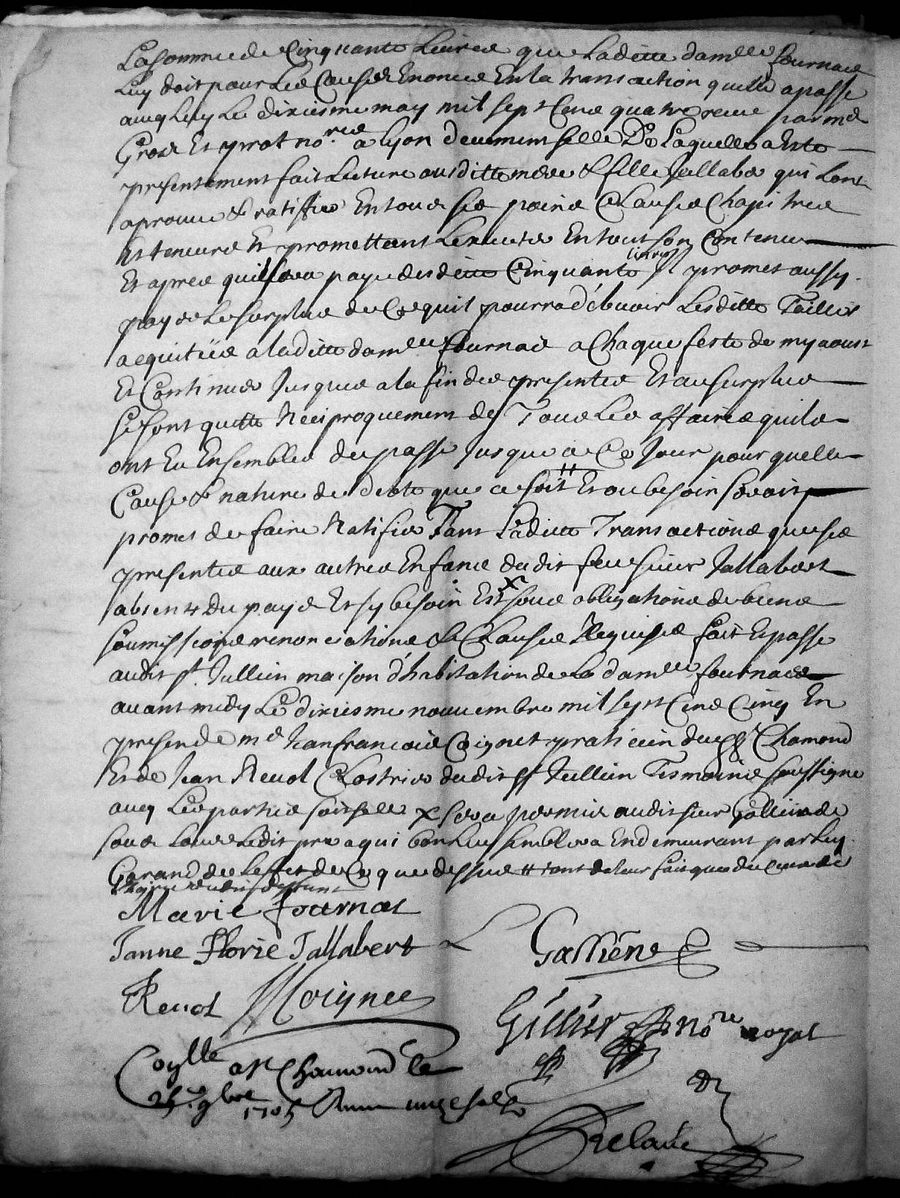 La somme de Cinquante Livres que Laditte dam.lle fournas
Luy doit pour Les Causes Enoncées En la transaction quelle a passe
avec Luy Le dixiesme may mil sept Cens quatre receue par me
Gros Et prot no.res a Lyon deuement selle De Laquelle a Este
presentement fait Lecture ausditte mere & fille Jallabert qui Lont
aprouue & ratiffie En tous ses poins Clauses Chapitres
Et teneurs Et promettant Lexecuter En tout son Contenu
Et apres quil sera paye desdittes Cinquante livres Il promet aussy
payer Le surplus de Ce quil pourra debuoir Lesditte Tailles
acquittées a laditte dam.lle fournas a Chaque feste de my aoust
Et Continuer Jusques a la fin des presentes Et au surplus
se sont quitte Reciproquement de Tous Les affaires quils
ont Eu Ensembles du passe Jusques a Ce Jour pour quelle
Cause & nature de debte que ce soit Et ou besoin seroit
promet de faire Ratiffier Tant Laditte Transactions que ses
presentes aux autres Enfans dudit feu sieur Jallabert
absents du pays Et sy besoin Est x sous obligations de biens
soumissions renonciations & Clauses Requises fait & passe
audit st. Jullien maison d'habitation de La dam.lle fournas
auant midy Le dixiesme nouembre mil sept Cens Cinq En
presence de me Jean francois Coignet praticien du st Chamond
Et de Jean Reuol Clastrier dudit st Jullien Tesmoins soussigne
auec Les parties x sera permis audit sieur Galliene
sous Laur credit pres a qui bon Luy semblera En demeurant par luy
Garand de Leffet de Ce que dessus
Marie fournas
Janne Florie Jallabert
Galliéne
Reuol
Coignet
Gillier no.re royal
Conlle a st Chamond le
25.e 9bre 1705